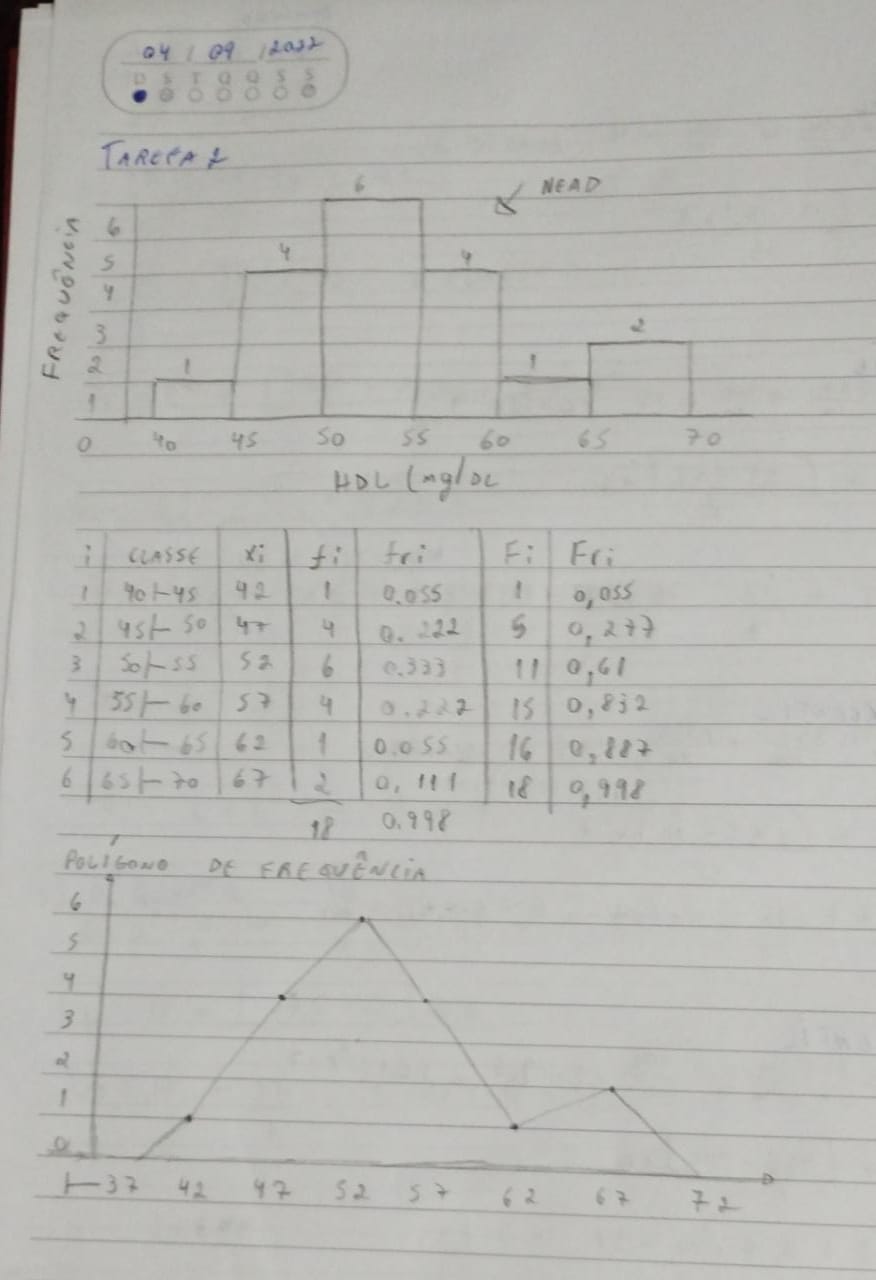 04 / 09 / 2022
D S T Q Q S S
TAREFA 2
6
NEAD
6
4
4
5
4
3
2
2
1
1
1
FREQUÊNCIA
0 40 45 50 55 60 65 70
HDL (mg/DL
i CLASSE xi fi fri Fi Fri
1 40⊢45 42 1 0.055 1 0,055
2 45⊢50 47 4 0.222 5 0,277
3 50⊢55 52 6 0.333 11 0,61
4 55⊢60 57 4 0.222 15 0,832
5 60⊢65 62 1 0.055 16 0,887
6 65⊢70 67 2 0,111 18 0,998
18 0.998
POLÍGONO DE FREQUÊNCIA
6
5
4
3
2
1
0
37 42 47 52 57 62 67 72